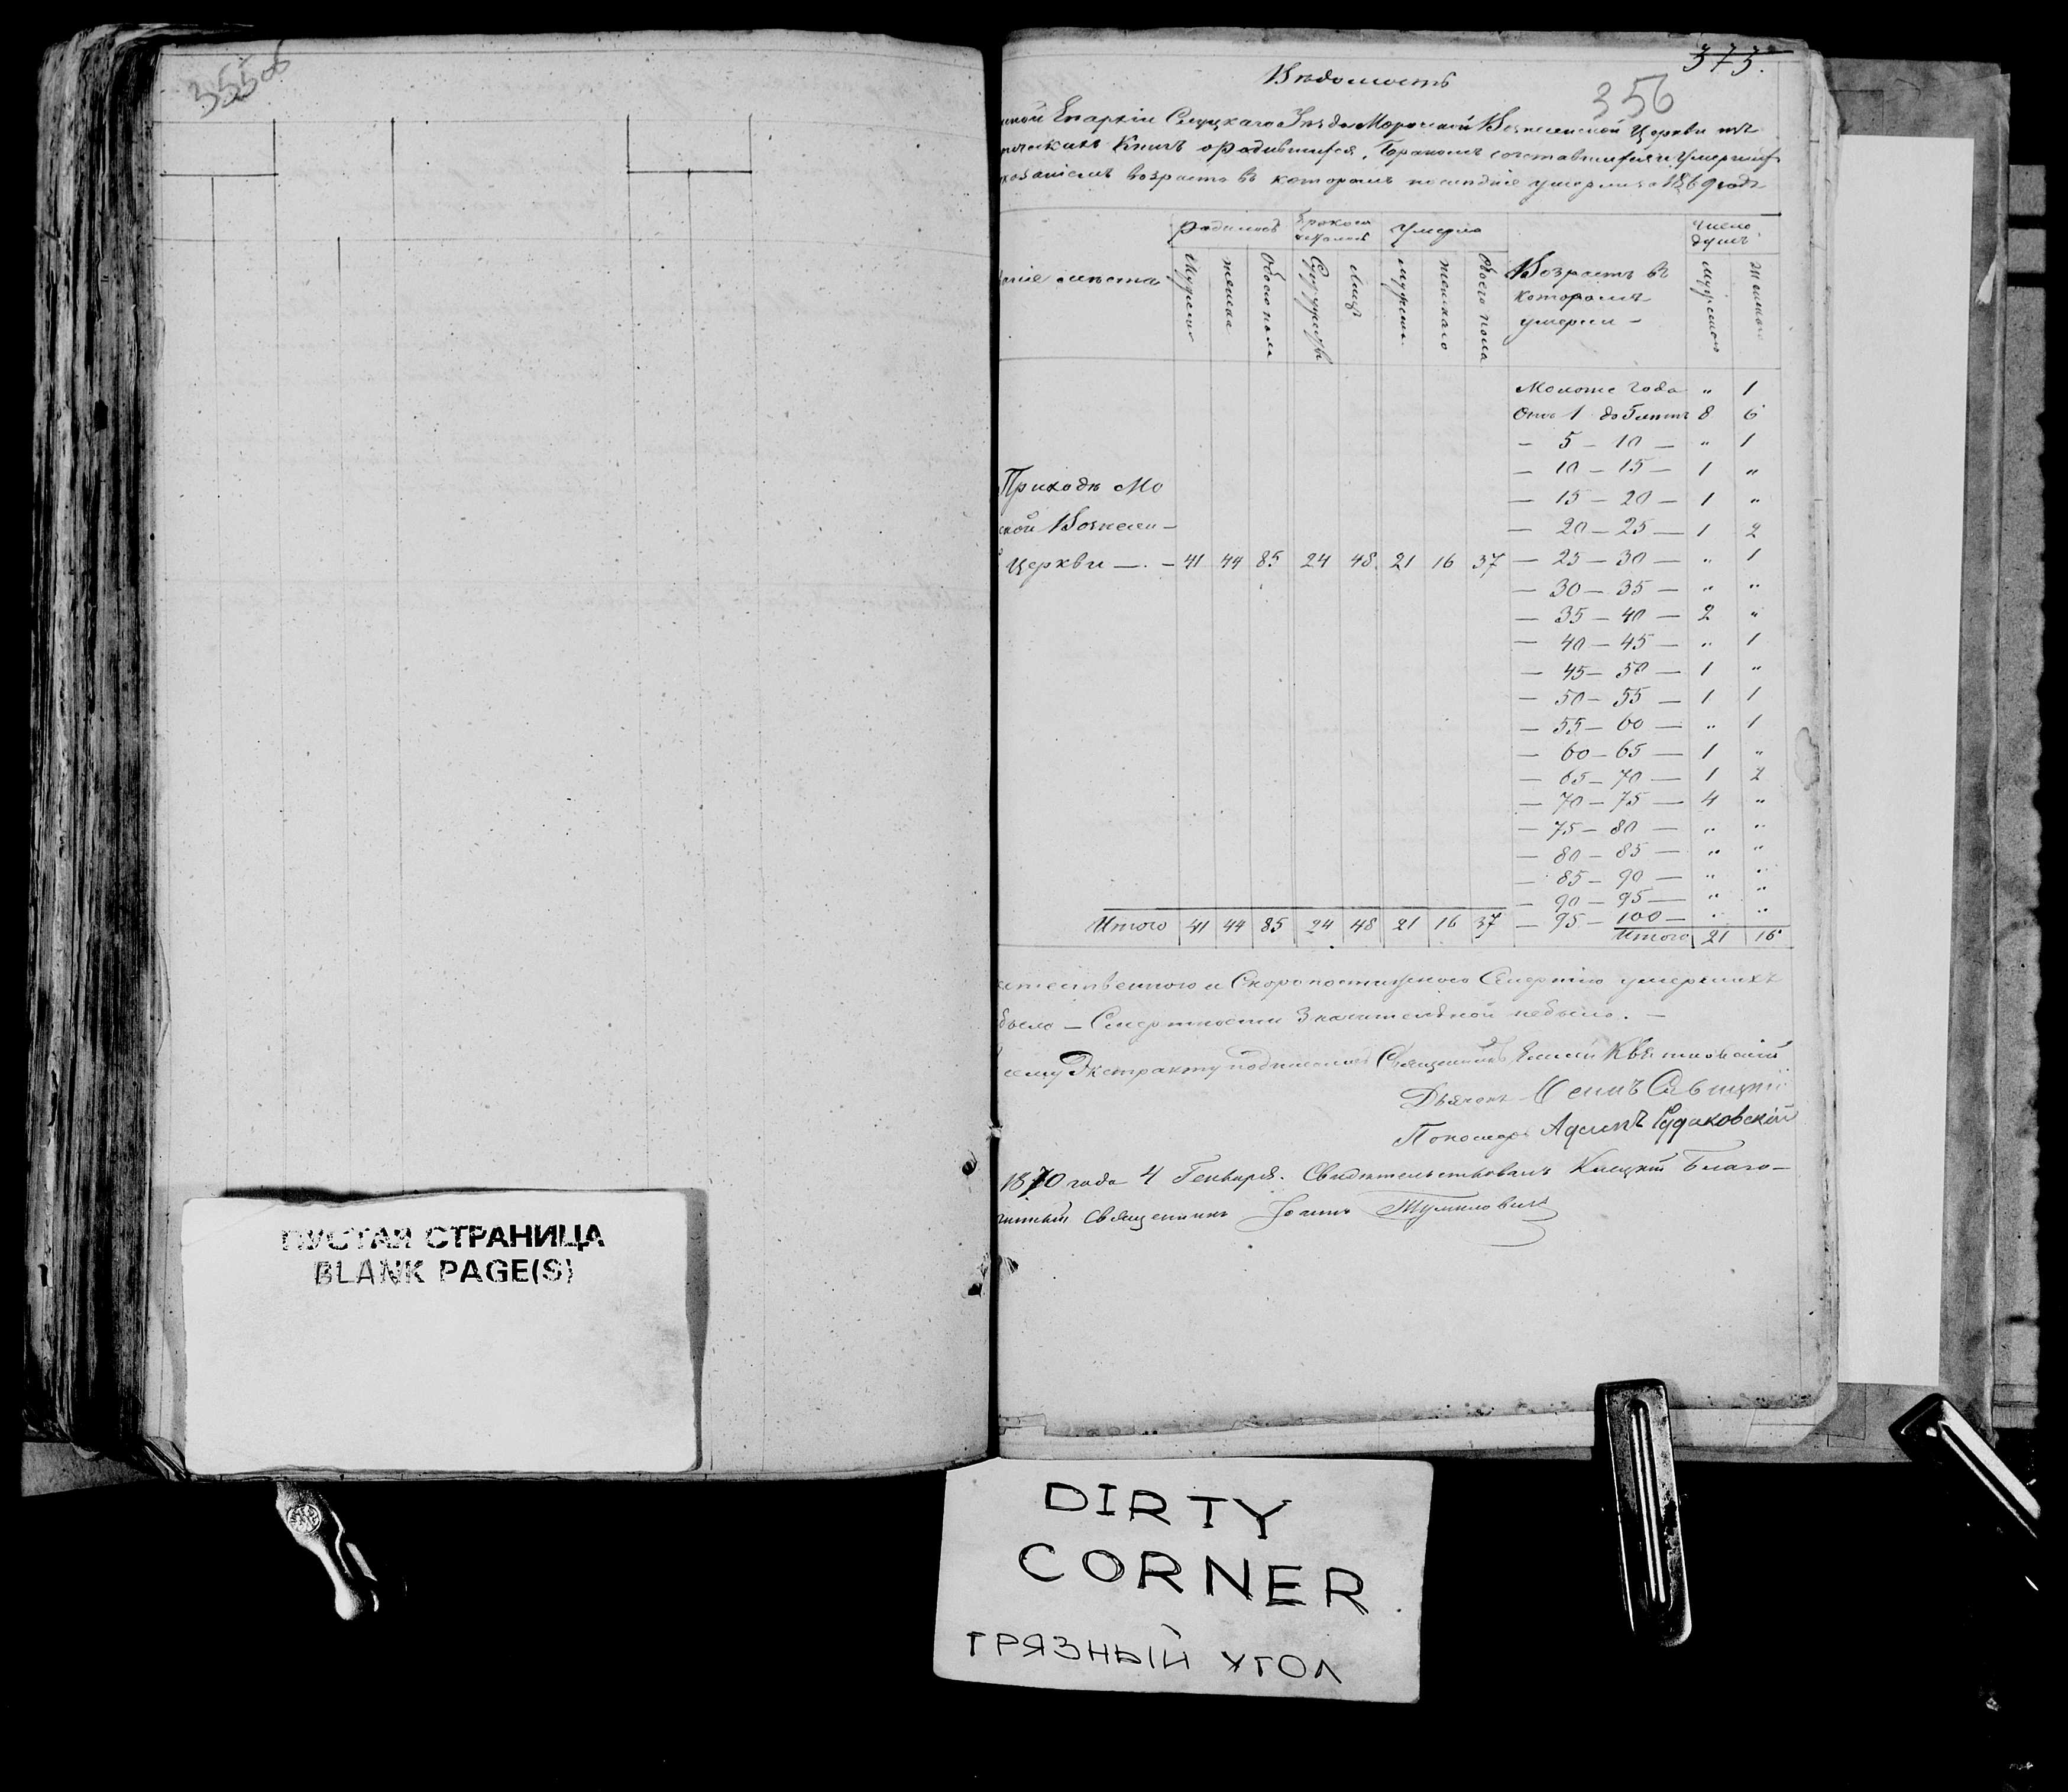 355об
ПУСТАЯ СТРАНИЦА
BLANK PAGE(S)
373.
356
Вѣдомость
Епархіи Слуцкаго Уѣзда Морочской Вознесенской Церкви изъ
Книгъ о родившихся, бракомъ сочетавшихся и умершихъ
возраста въ которомъ послѣдніе умерли за 1869 годъ
родилось | браком | Умерло | число душъ
мѣста | мужеска | женска | обоего пола | Супружествъ | лицъ | мужеска | женскаго | Обоего пола | Возрастъ въ которомъ умерли — | мужескаго | женскаго
Моложе года „ 1
Отъ 1 до 5 лѣтъ 8 6
— 5 — 10 — „ 1
— 10 — 15 — 1 „
— 15 — 20 — 1 „
— 20 — 25 — 1 2
Приходѣ Мо
ской Вознесен—
Церкви —. — 41 44 85 24 48 21 16 37 — 25 — 30 — „ 1
— 30 — 35 — „ „
— 35 — 40 — 2 „
— 40 — 45 — „ 1
— 45 — 50 — 1 „
— 50 — 55 — 1 1
— 55 — 60 — „ 1
— 60 — 65 — 1 „
— 65 — 70 — 1 2
— 70 — 75 — 4 „
— 75 — 80 — „ „
— 80 — 85 — „ „
— 85 — 90 — „ „
— 90 — 95 — „ „
— 95 — 100 — „ „
Итого 41 44 85 24 48 21 16 37 Итого 21 16
ественною и Скоропостижною Смертію умершихъ
было — Смертности значительной небыло. —
сему Экстракту подписался Священникъ Квятковскій
Дьячокъ Осипъ Савицкій
Пономарь Адамъ Рудаковскій
1870 года 4 Генваря. Свидѣтельствовалъ Клецкій Благо—
чинный Священникъ Іоаннъ Тумиловичъ
DIRTY
CORNER
ГРЯЗНЫЙ УГОЛ